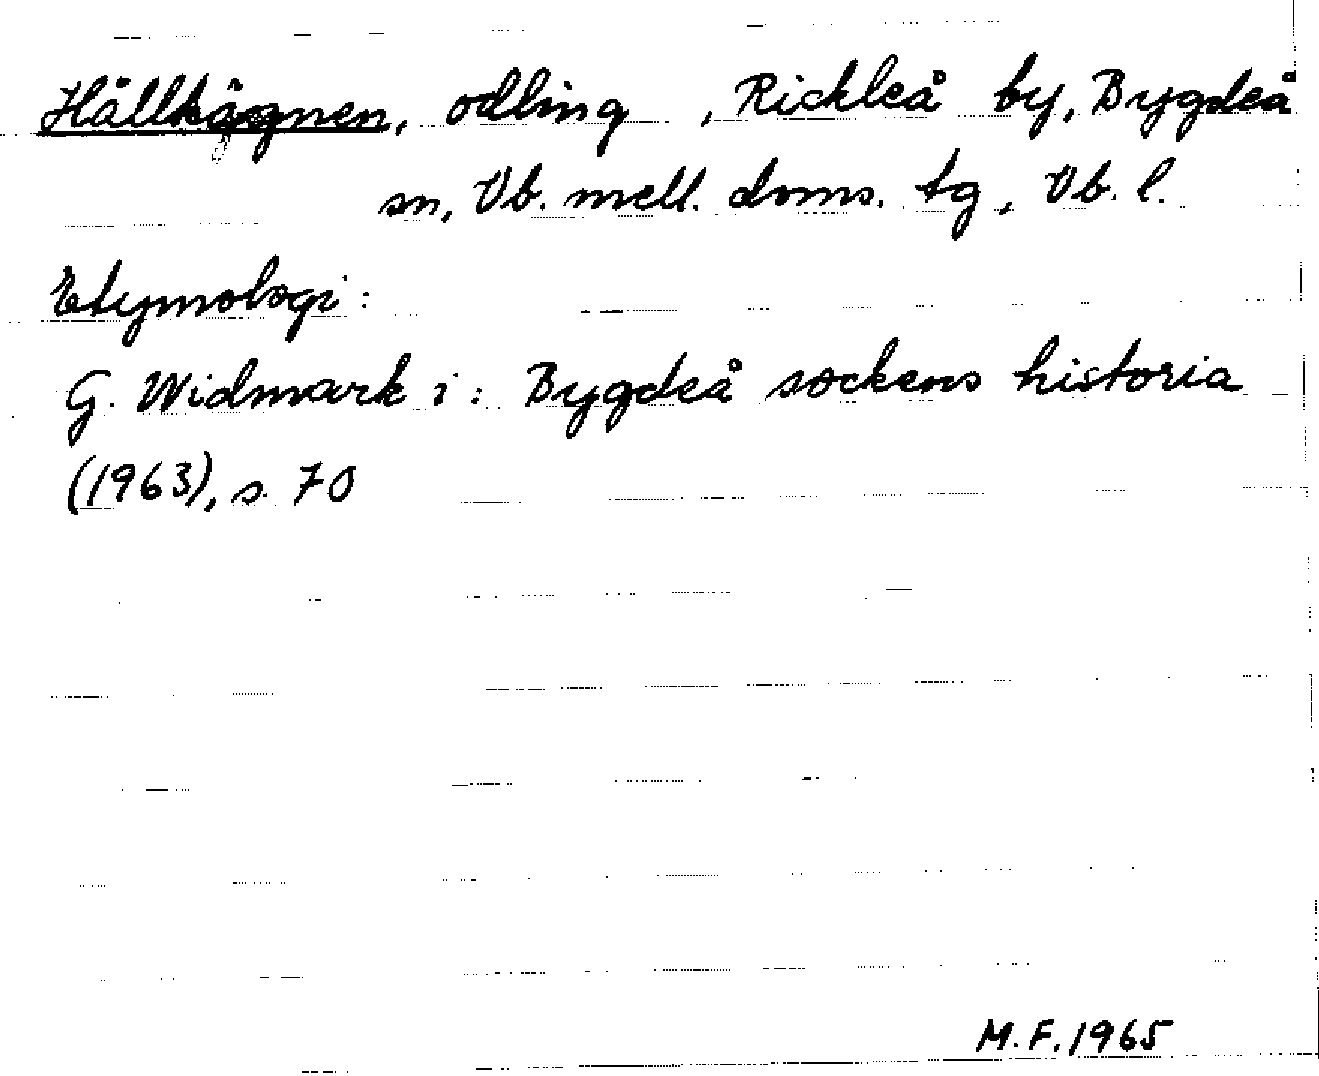 , odling , Rickleå by, Bygdeå
sn, Vb. mell. doms. tg, Vb. l.
Etymologi :
G. Widmark i : Bygdeå sockens historia
(1963), s. 70
M.F. 1965